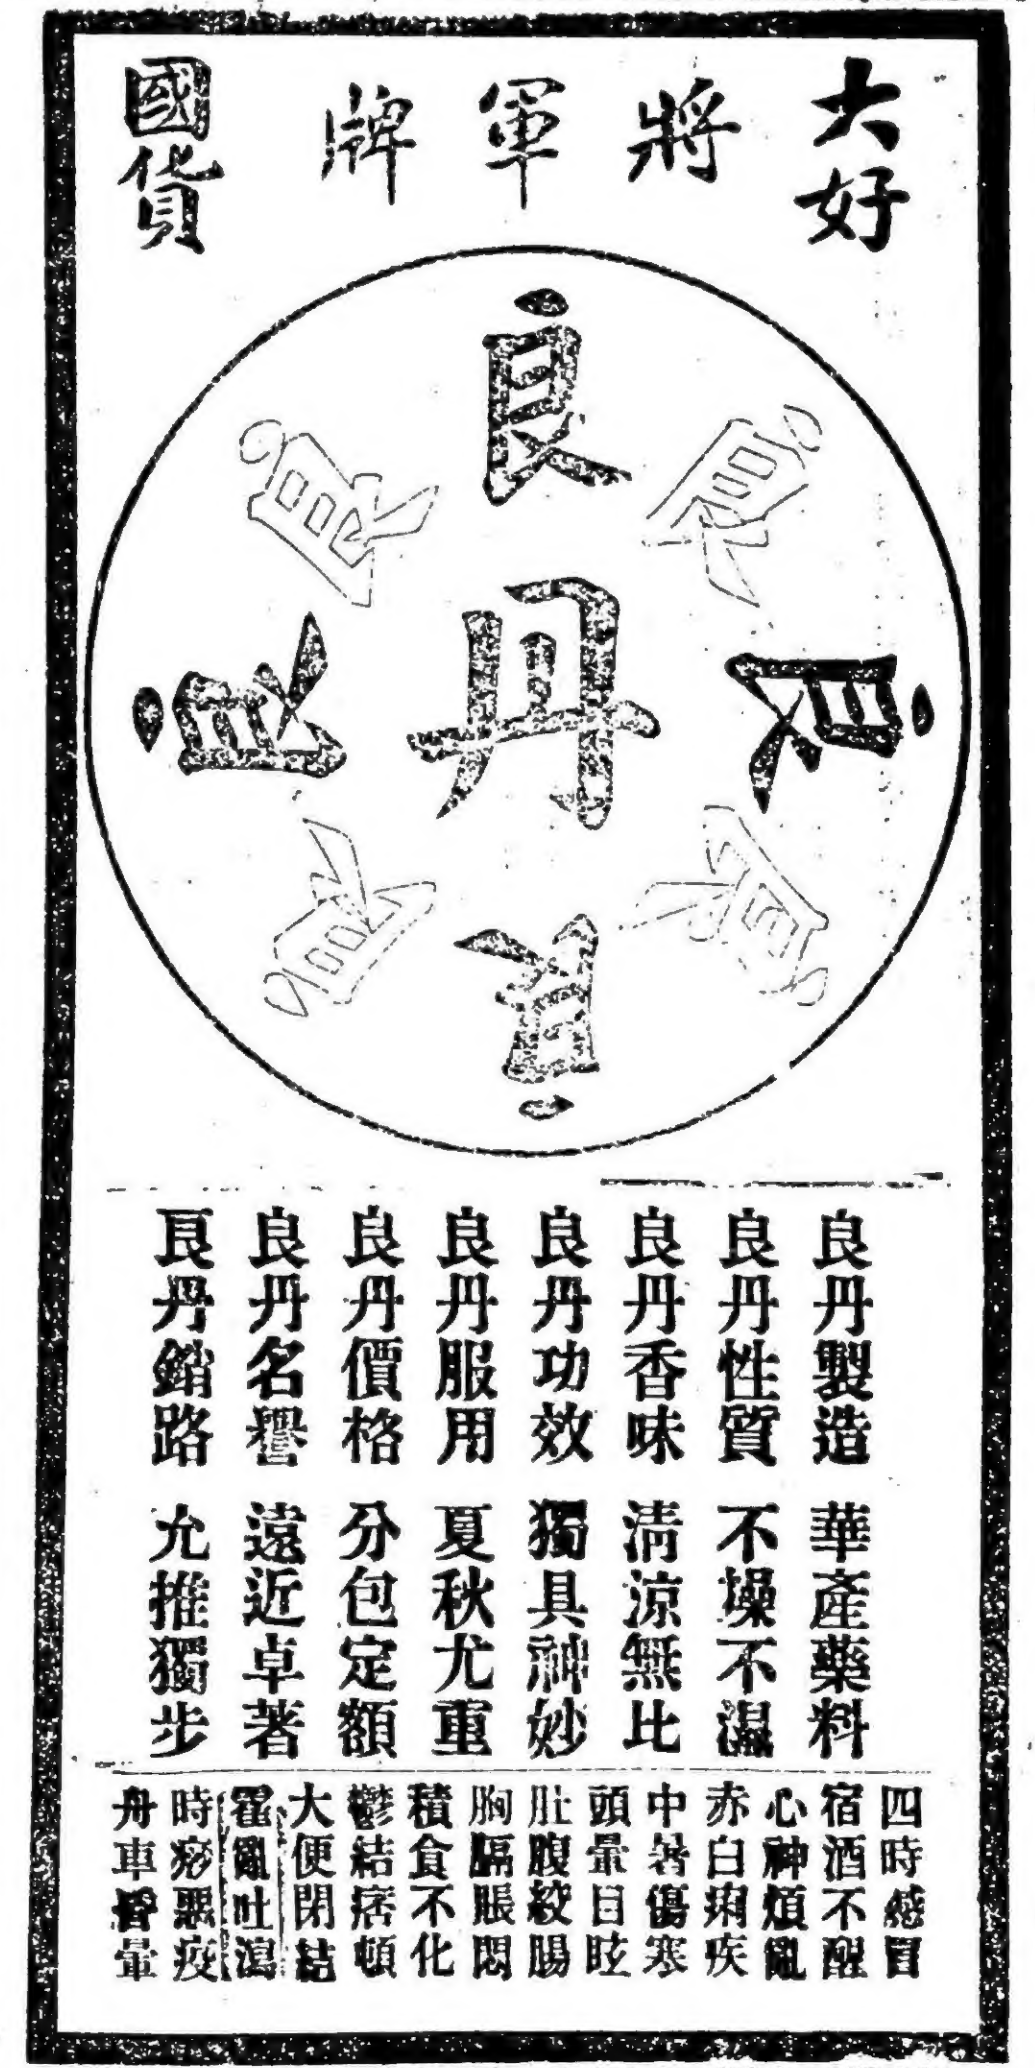 大好
將軍牌
國貨
良
良
良
良
丹
良
良
良
良
良丹製造 華產藥料
良丹性質 不燥不濕
良丹香味 清涼無比
良丹功效 獨具神妙
良丹服用 夏秋尤重
良丹價格 分包定額
良丹名譽 遠近卓著
良丹銷路 允推獨步
四時感冒
宿酒不醒
心神煩亂
赤白痢疾
中暑傷寒
頭暈目眩
肚腹絞腸
胸膈脹悶
積食不化
鬱結痞頓
大便閉結
霍亂吐瀉
時痧惡疫
舟車昏暈